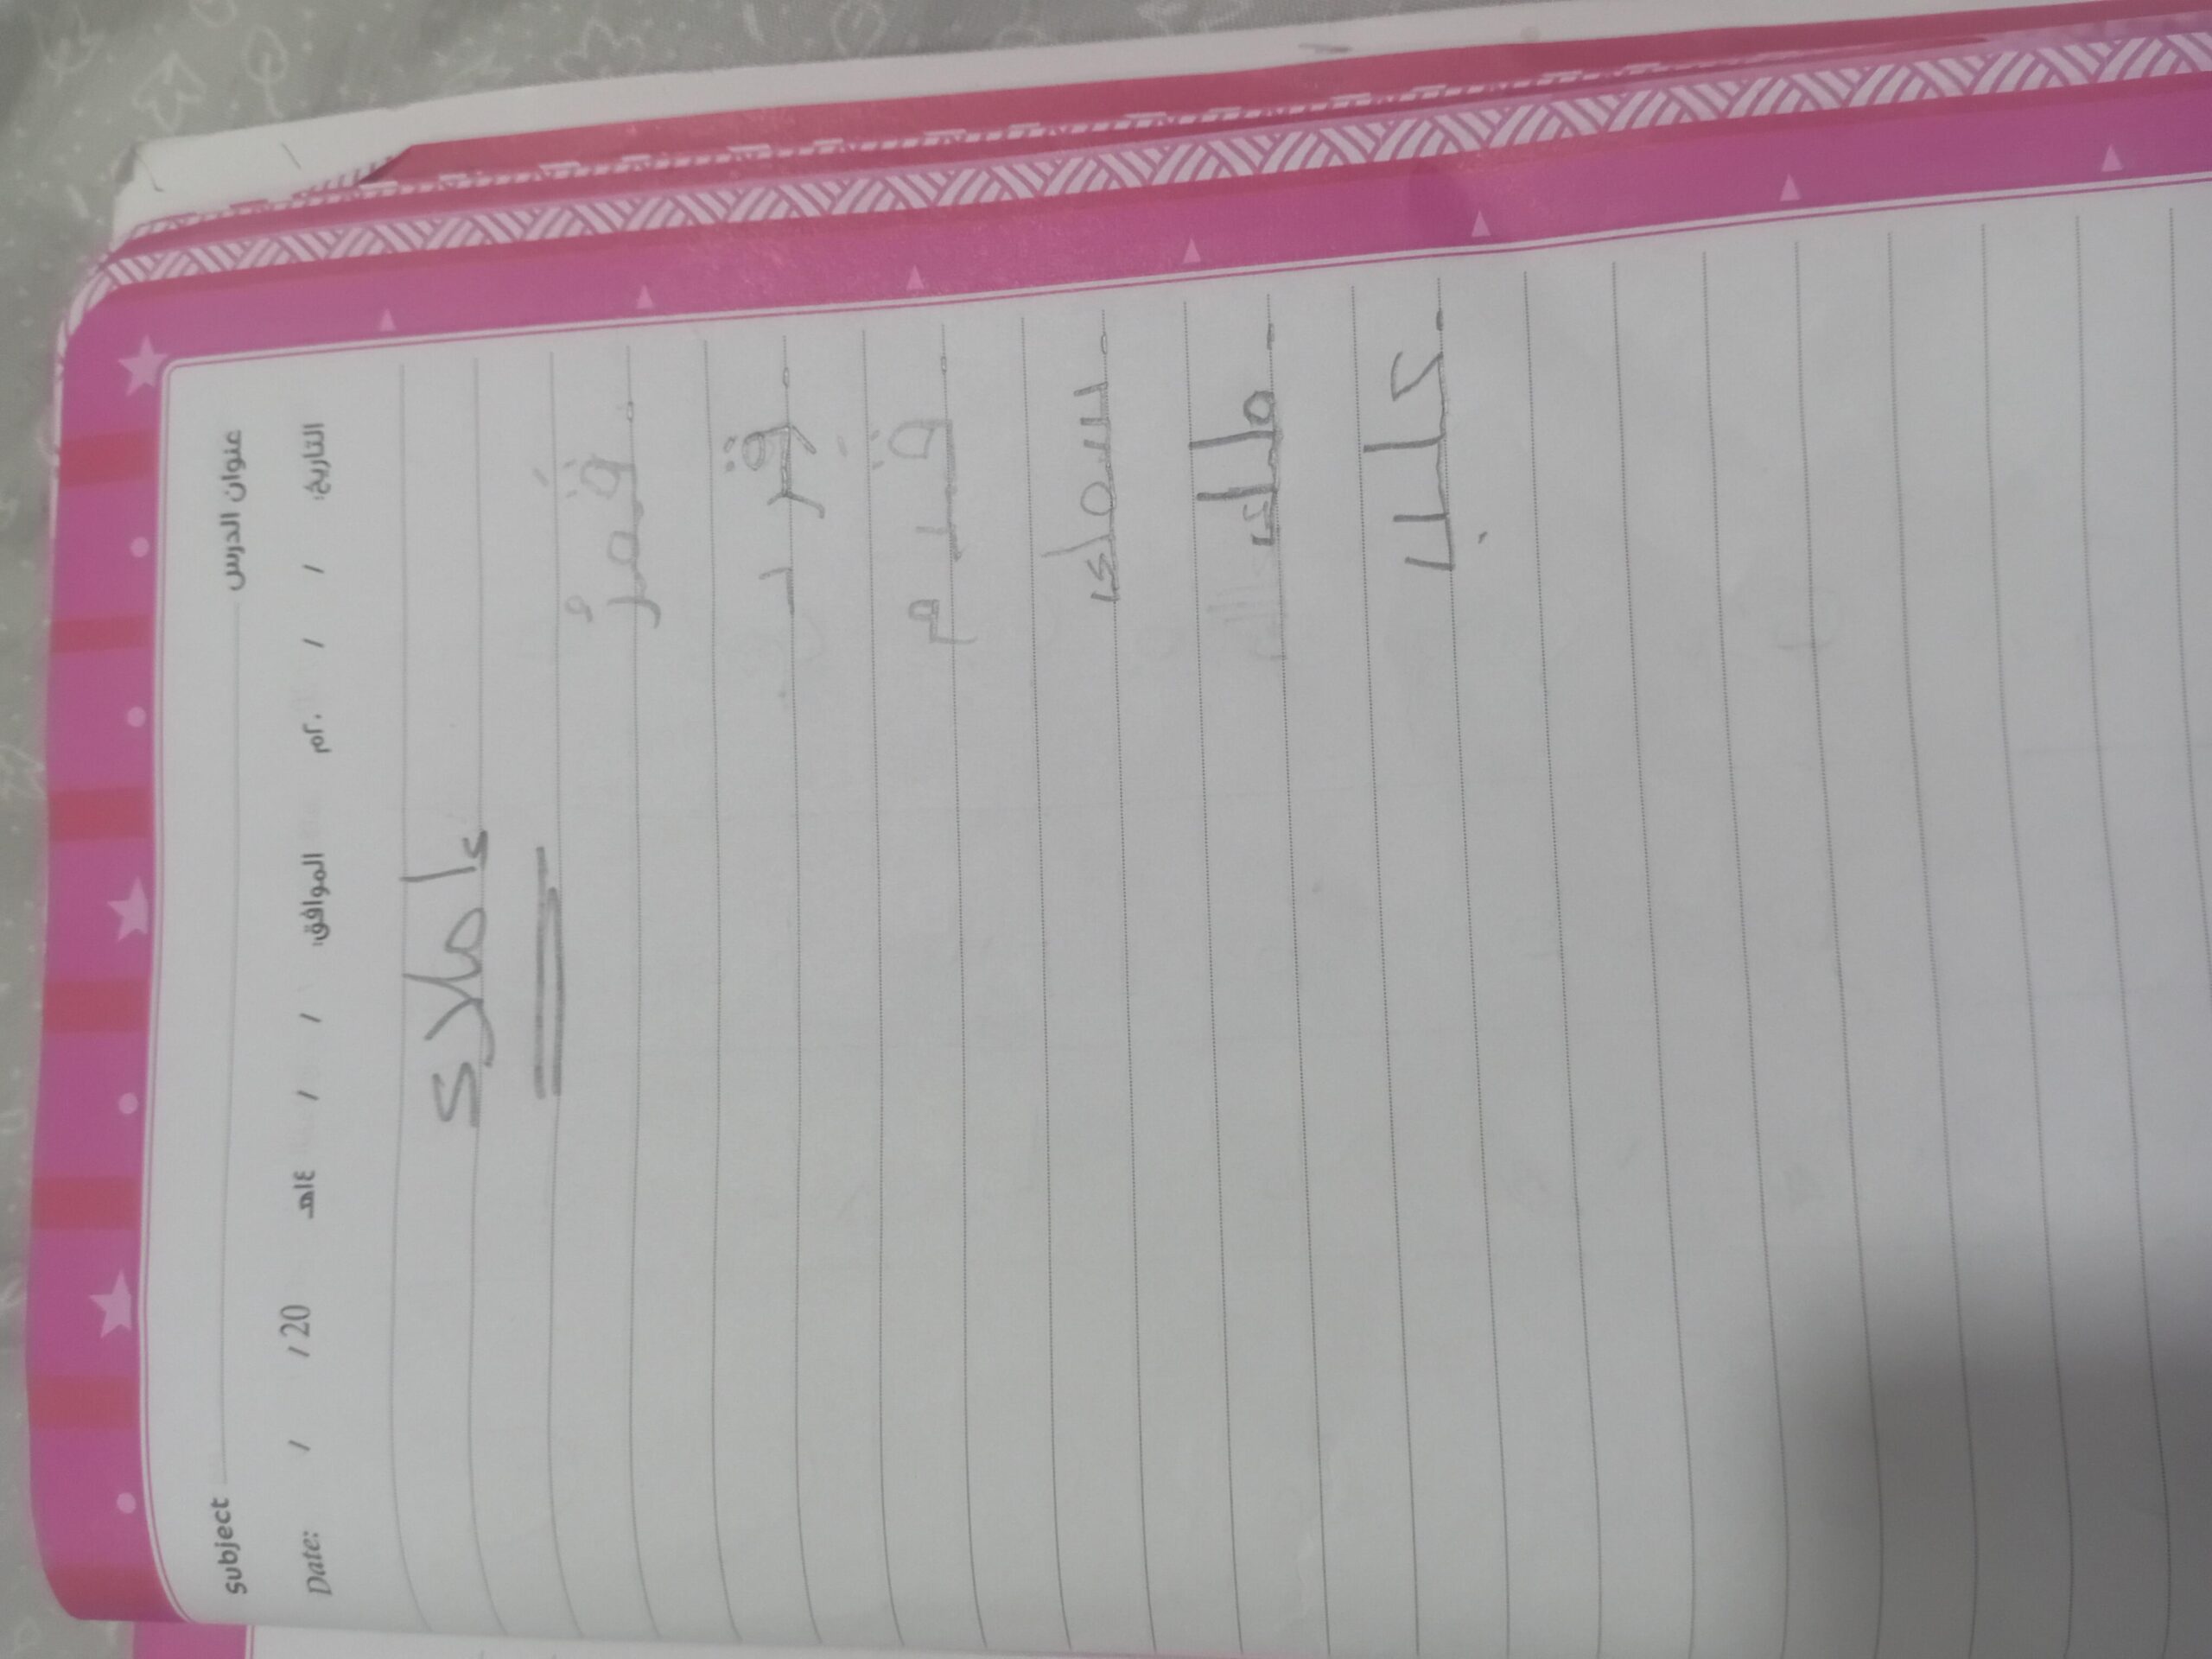 عنوان الدرس Subject
التاريخ: / / ٢٠م الموافق: / / ١٤هـ Date: / / 20
ءاملاء
- قمرٌ
- قرد
- قدم
- سمك
- ملك
- كلب